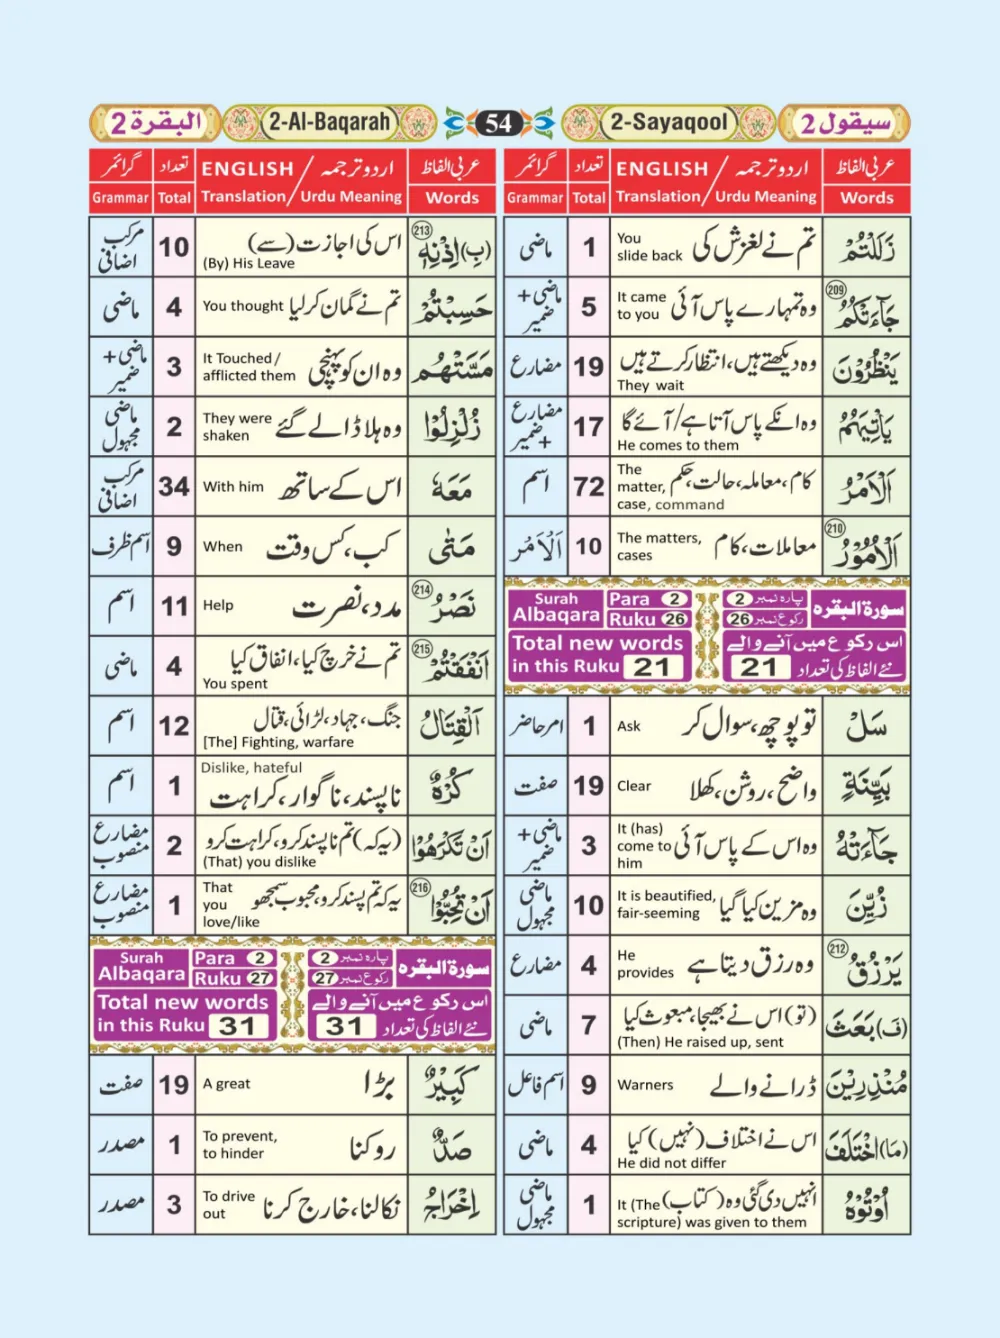 البقرة 2
2-Al-Baqarah
54
2-Sayaqool
سيقول 2
عربی الفاظ
اردو ترجمہ / ENGLISH
تعداد
گرائمر
Words
Translation / Urdu Meaning
Total
Grammar
زَلَلْتُمْ
تم نے لغزش کی
You
slide back
1
ماضی
209
جَآءَتْكُمُ
وہ تمہارے پاس آئی
It came
to you
5
ماضی + ضمیر
يَنْظُرُوْنَ
وہ دیکھتے ہیں، انتظار کرتے ہیں
They wait
19
مضارع
يَاْتِيَهُمُ
وہ انکے پاس آتا ہے/آئے گا
He comes to them
17
مضارع + ضمیر
اَلْاَمْرُ
کام، معاملہ، حالت، حکم
The
matter,
case, command
72
اسم
210
اَلْاُمُوْرُ
معاملات، کام
The matters,
cases
10
اَلْاَمْر
سورة البقره
پارہ نمبر 2
رکوع نمبر 26
Surah
Albaqara
Para 2
Ruku 26
اس رکوع میں آنے والے
نئے الفاظ کی تعداد 21
Total new words
in this Ruku 21
سَلْ
تو پوچھ، سوال کر
Ask
1
امر حاضر
بَيِّنَةٍ
واضح، روشن، کھلا
Clear
19
صفت
جَآءَتْهُ
وہ اس کے پاس آئی
It (has)
come to
him
3
ماضی + ضمیر
زُيِّنَ
وہ مزین کیا گیا
It is beautified,
fair-seeming
10
ماضی مجہول
212
يَرْزُقُ
وہ رزق دیتا ہے
He
provides
4
مضارع
(فَ) بَعَثَ
(تو) اس نے بھیجا، مبعوث کیا
(Then) He raised up, sent
7
ماضی
مُنْذِرِيْنَ
ڈرانے والے
Warners
9
اسم فاعل
(مَا) اخْتَلَفَ
اس نے اختلاف (نہیں) کیا
He did not differ
4
ماضی
اُوْتُوْهُ
انہیں دی گئی وہ (کتاب)
It (The
scripture) was given to them
1
ماضی مجہول
عربی الفاظ
اردو ترجمہ / ENGLISH
تعداد
گرائمر
Words
Translation / Urdu Meaning
Total
Grammar
213
(بِ) اِذْنِهٖ
اس کی اجازت (سے)
(By) His Leave
10
مرکب اضافی
حَسِبْتُمْ
تم نے گمان کر لیا
You thought
4
ماضی
مَسَّتْهُمُ
وہ ان کو پہنچی
It Touched/
afflicted them
3
ماضی + ضمیر
زُلْزِلُوْا
وہ ہلا ڈالے گئے
They were
shaken
2
ماضی مجہول
مَعَهٗ
اس کے ساتھ
With him
34
مرکب اضافی
مَتٰى
کب، کس وقت
When
9
اسم ظرف
214
نَصْرُ
مدد، نصرت
Help
11
اسم
215
اَنْفَقْتُمْ
تم نے خرچ کیا، انفاق کیا
You spent
4
ماضی
اَلْقِتَالُ
جنگ، جہاد، لڑائی، قتال
[The] Fighting, warfare
12
اسم
كُرْهٌ
Dislike, hateful
ناپسند، ناگوار، کراہت
1
اسم
اَنْ تَكْرَهُوْا
(یہ کہ) تم ناپسند کرو، کراہت کرو
(That) you dislike
2
مضارع منصوب
216
اَنْ تُحِبُّوْا
یہ کہ تم پسند کرو، محبوب سمجھو
That
you
love/like
1
مضارع منصوب
سورة البقره
پارہ نمبر 2
رکوع نمبر 27
Surah
Albaqara
Para 2
Ruku 27
اس رکوع میں آنے والے
نئے الفاظ کی تعداد 31
Total new words
in this Ruku 31
كَبِيْرٌ
بڑا
A great
19
صفت
صَدٌّ
روکنا
To prevent,
to hinder
1
مصدر
اِخْرَاجُ
نکالنا، خارج کرنا
To drive
out
3
مصدر